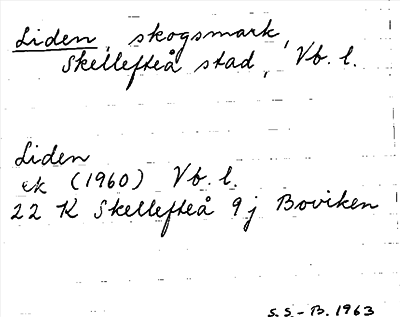 Liden, skogsmark,
Skellefteå stad, Vb. l.
Liden
ek (1960) Vb. l.
22 K Skellefteå 9j Boviken
S.S-B. 1963